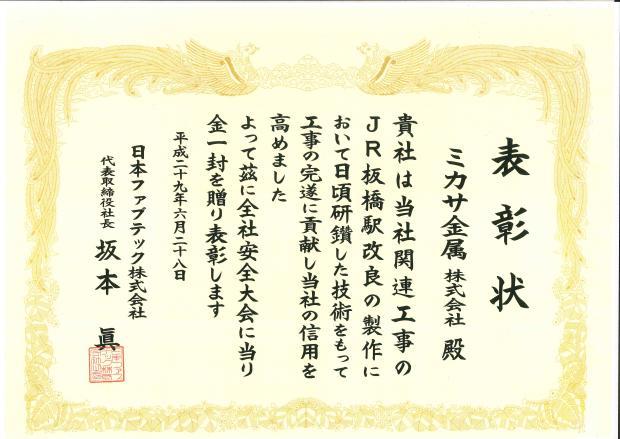 表彰状
ミカサ金属株式会社 殿
貴社は当社関連工事の
ＪＲ板橋駅改良の製作に
おいて日頃研鑽した技術をもって
工事の完遂に貢献し当社の信用を
高めました
よって茲に全社安全大会に当り
金一封を贈り表彰します
平成二十九年六月二十八日
日本ファブテック株式会社
代表取締役社長 坂本 眞